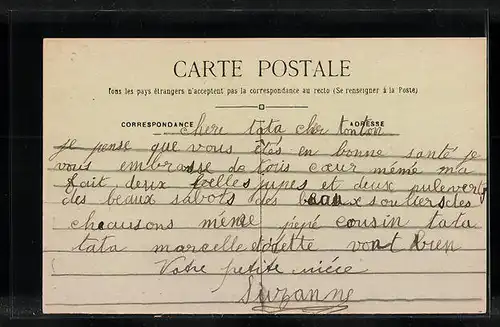 CARTE POSTALE
Tous les pays étrangers n'acceptent pas la correspondance au recto (Se renseigner à la Poste)
CORRESPONDANCE
ADRESSE
chere tata cher tonton
je pense que vous êtes en bonne santé je
vous embrasse de tous cœur mémé ma
fait deux jupes et deux pulevert
des beaux sabots des beaux souliers des
chausons mémé pépé cousin tata
tata marcelle odette vont bien
Votre petite niéce
Suzanne